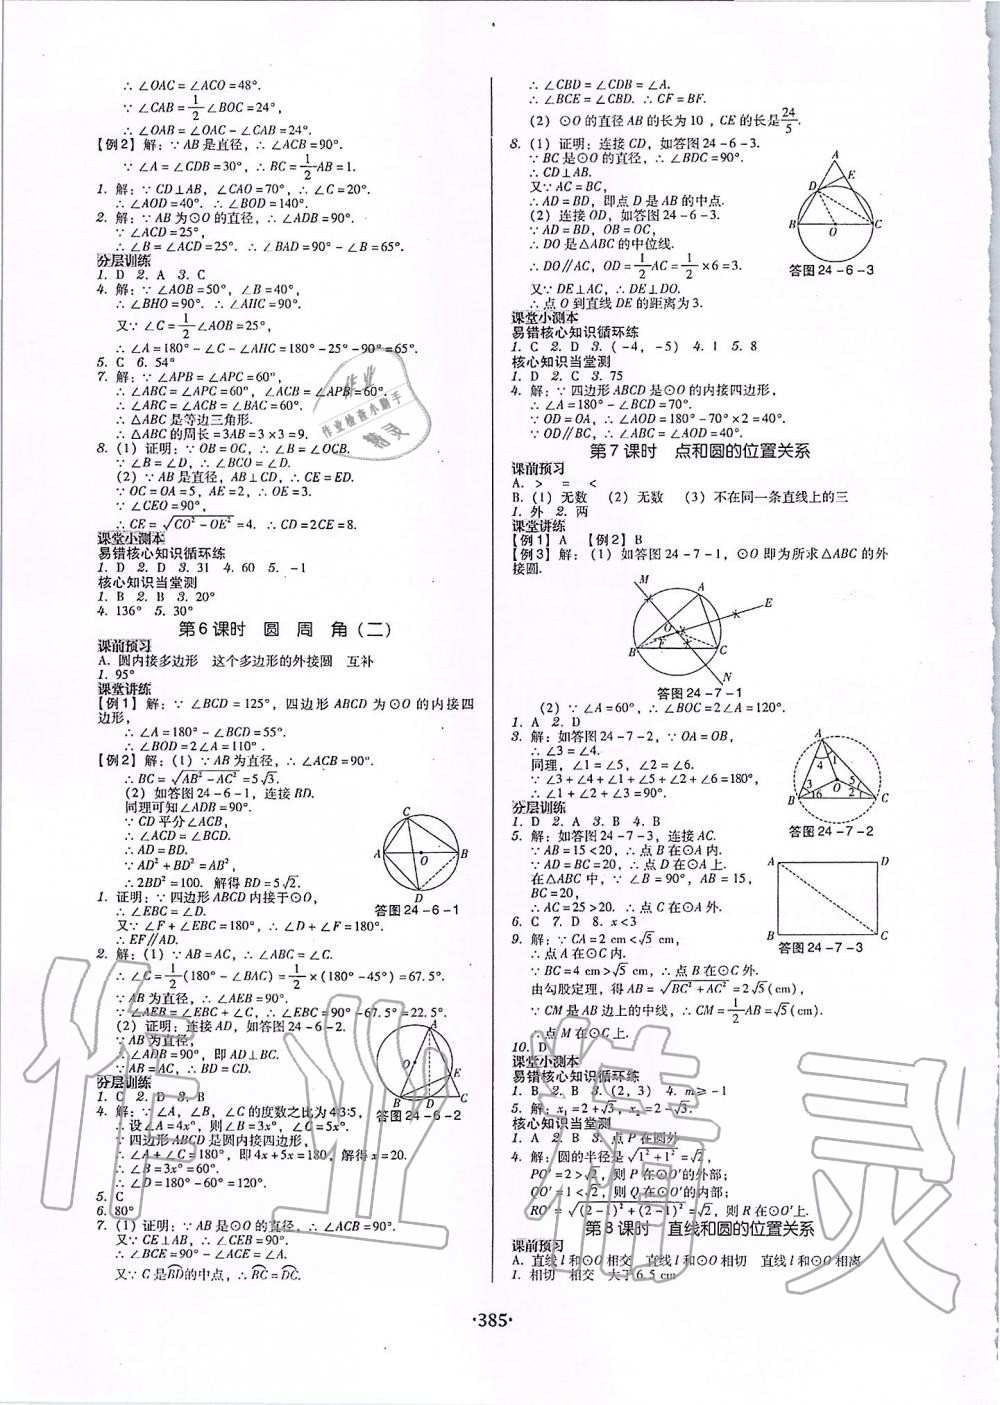 ∴ ∠OAC = ∠ACO = 48°.
∵ ∠CAB = 1/2 ∠BOC = 24°,
∴ ∠OAB = ∠OAC - ∠CAB = 24°.
【例2】解：∵ AB 是直径，∴ ∠ACB = 90°.
∵ ∠A = ∠CDB = 30°，∴ BC = 1/2 AB = 1.
1. 解：∵ CD⊥AB，∠CAO = 70°，∴ ∠C = 20°.
∴ ∠AOD = 40°. ∴ ∠BOD = 140°.
2. 解：∵ AB 为⊙O 的直径，∴ ∠ADB = 90°.
∵ ∠ACD = 25°，
∴ ∠B = ∠ACD = 25°. ∴ ∠BAD = 90° - ∠B = 65°.
分层训练
1. D 2. A 3. C
4. 解：∵ ∠AOB = 50°，∠B = 40°，
∴ ∠BHO = 90°. ∴ ∠AHC = 90°.
又∵ ∠C = 1/2 ∠AOB = 25°，
∴ ∠A = 180° - ∠C - ∠AHC = 180° - 25° - 90° = 65°.
5. C 6. 54°
7. 解：∵ ∠APB = ∠APC = 60°，
∴ ∠ABC = ∠APC = 60°，∠ACB = ∠APB = 60°.
∴ ∠ABC = ∠ACB = ∠BAC = 60°.
∴ △ABC 是等边三角形.
∴ △ABC 的周长 = 3AB = 3×3 = 9.
8. (1) 证明：∵ OB = OC，∴ ∠B = ∠OCB.
∵ ∠B = ∠D，∴ ∠BCO = ∠D.
(2) ∵ AB 是直径，AB⊥CD，∴ CE = ED.
∵ OC = OA = 5，AE = 2，∴ OE = 3.
∵ ∠CEO = 90°，
∴ CE = √(CO² - OE²) = 4. ∴ CD = 2CE = 8.
课堂小测本
易错核心知识循环练
1. D 2. D 3. 31 4. 60 5. -1
核心知识当堂测
1. B 2. B 3. 20°
4. 136° 5. 30°
第6课时 圆 周 角（二）
课前预习
A. 圆内接多边形 这个多边形的外接圆 互补
1. 95°
课堂讲练
【例1】解：∵ ∠BCD = 125°，四边形 ABCD 为⊙O 的内接四
边形，
∴ ∠A = 180° - ∠BCD = 55°.
∴ ∠BOD = 2∠A = 110°.
【例2】解：(1) ∵ AB 为直径，∴ ∠ACB = 90°.
∴ BC = √(AB² - AC²) = 5√3.
(2) 如答图24-6-1，连接 BD.
同理可知∠ADB = 90°.
∵ CD 平分∠ACB，
∴ ∠ACD = ∠BCD.
∴ AD = BD.
∵ AD² + BD² = AB²，
∴ 2BD² = 100. 解得 BD = 5√2.
C
A
O
B
D
答图24-6-1
1. 证明：∵ 四边形 ABCD 内接于⊙O，
∴ ∠EBC = ∠D.
又∵ ∠F + ∠EBC = 180°，∴ ∠D + ∠F = 180°.
∴ EF∥AD.
2. 解：(1) ∵ AB = AC，∴ ∠ABC = ∠C.
∴ ∠C = 1/2 (180° - ∠BAC) = 1/2 × (180° - 45°) = 67.5°.
∵ AB 为直径，∴ ∠AEB = 90°.
∵ ∠AEB = ∠EBC + ∠C，∴ ∠EBC = 90° - 67.5° = 22.5°.
(2) 证明：连接 AD，如答图24-6-2.
∵ AB 为直径，
∴ ∠ADB = 90°，即 AD⊥BC.
∵ AB = AC，∴ BD = CD.
A
O
E
B
D
C
答图24-6-2
分层训练
1. C 2. D 3. B
4. 解：∵ ∠A，∠B，∠C 的度数之比为4:3:5，
∴ 设∠A = 4x°，则∠B = 3x°，∠C = 5x°.
∵ 四边形 ABCD 是圆内接四边形，
∴ ∠A + ∠C = 180°，即 4x + 5x = 180，解得 x = 20.
∴ ∠B = 3x° = 60°.
∴ ∠D = 180° - 60° = 120°.
5. C
6. 80°
7. (1) 证明：∵ AB 是⊙O 的直径，∴ ∠ACB = 90°.
又∵ CE⊥AB，∴ ∠CEB = 90°.
∴ ∠BCE = 90° - ∠ACE = ∠A.
又∵ C 是BD的中点，∴ BC = DC.
∴ ∠CBD = ∠CDB = ∠A.
∴ ∠BCE = ∠CBD. ∴ CF = BF.
(2) ⊙O 的直径 AB 的长为10，CE 的长是24/5.
8. (1) 证明：连接 CD，如答图24-6-3.
∵ BC 是⊙O 的直径，∴ ∠BDC = 90°.
∴ CD⊥AB.
又∵ AC = BC，
∴ AD = BD，即点 D 是 AB 的中点.
(2) 连接 OD，如答图24-6-3.
∵ AD = BD，OB = OC，
∴ DO 是△ABC 的中位线.
∴ DO∥AC，OD = 1/2 AC = 1/2 × 6 = 3.
又∵ DE⊥AC，∴ DE⊥DO.
∴ 点 O 到直线 DE 的距离为3.
A
E
D
B
O
C
答图24-6-3
课堂小测本
易错核心知识循环练
1. C 2. D 3. (-4，-5) 4. 1 5. 8
核心知识当堂测
1. D 2. C 3. 75
4. 解：∵ 四边形 ABCD 是⊙O 的内接四边形，
∴ ∠A = 180° - ∠BCD = 70°.
∵ OD = OA，∴ ∠AOD = 180° - 70° × 2 = 40°.
∵ OD∥BC，∴ ∠ABC = ∠AOD = 40°.
第7课时 点和圆的位置关系
课前预习
A. > = <
B. (1) 无数 (2) 无数 (3) 不在同一条直线上的三
1. 外 2. 两
课堂讲练
【例1】A 【例2】B
【例3】解：(1) 如答图24-7-1，⊙O 即为所求△ABC 的外
接圆.
M
A
E
O
F
B
C
N
答图24-7-1
(2) ∵ ∠A = 60°，∴ ∠BOC = 2∠A = 120°.
1. A 2. D
3. 解：如答图24-7-2，∵ OA = OB，
∴ ∠3 = ∠4.
同理，∠1 = ∠5，∠2 = ∠6.
∵ ∠3 + ∠4 + ∠1 + ∠5 + ∠2 + ∠6 = 180°，
∴ ∠1 + ∠2 + ∠3 = 90°.
A
4
1
3
O
5
6
2
B
C
答图24-7-2
分层训练
1. D 2. A 3. B 4. B
5. 解：如答图24-7-3，连接 AC.
∵ AB = 15 < 20，∴ 点 B 在⊙A 内.
∵ AD = BC = 20，∴ 点 D 在⊙A 上.
在△ABC 中，∵ ∠B = 90°，AB = 15，
BC = 20，
∴ AC = 25 > 20. ∴ 点 C 在⊙A 外.
A
D
B
C
答图24-7-3
6. C 7. D 8. x<3
9. 解：∵ CA = 2 cm < √5 cm，
∴ 点 A 在⊙C 内.
∵ BC = 4 cm > √5 cm，∴ 点 B 在⊙C 外.
由勾股定理，得 AB = √(BC² + AC²) = 2√5 (cm)，
∵ CM 是 AB 边上的中线，∴ CM = 1/2 AB = √5 (cm).
∴ 点 M 在⊙C 上.
10. D
课堂小测本
易错核心知识循环练
1. B 2. B 3. (2，3) 4. m≥-1
5. 解：x₁ = 2 + √3，x₂ = 2 - √3.
核心知识当堂测
1. A 2. B 3. 点 P 在圆外
4. 解：圆的半径是√(1² + 1²) = √2，
PO' = 2 > √2，则 P 在⊙O'的外部；
QO' = 1 < √2，则 Q 在⊙O'的内部；
RO' = √((2-1)² + (2-1)²) = √2，则 R 在⊙O'上.
第8课时 直线和圆的位置关系
课前预习
A. 直线 l 和⊙O 相交 直线 l 和⊙O 相切 直线 l 和⊙O 相离
1. 相切 相交 大于6.5 cm
·385·
作业
作业检查小助手
精灵
作业精灵